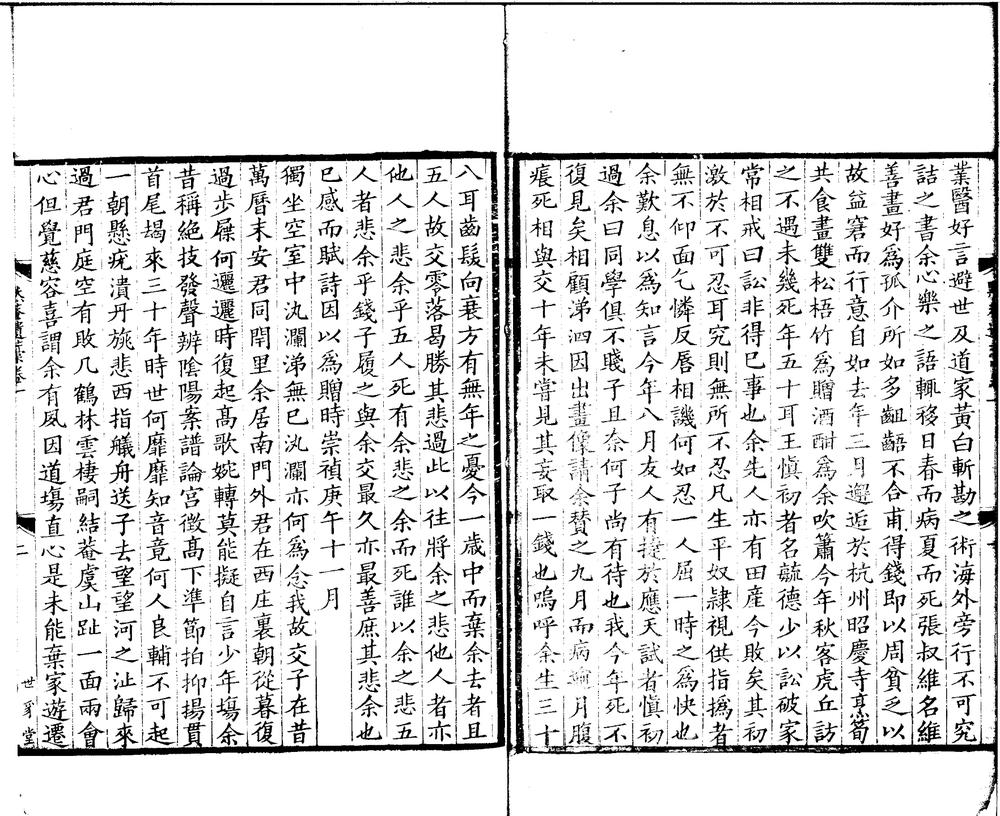 業醫好言避世及道家黃白斬勘之術海外旁行不可究
詰之書余心樂之語輒移日春而病夏而死張叔維名維
善畫好爲孤介所如多齟齬不合甫得錢即以周貧乏以
故益窘而行意自如去年三月邂逅於杭州昭慶寺烹筍
共食畫雙松梧竹爲贈酒酣爲余吹簫今年秋客虎丘訪
之不遇未幾死年五十耳王愼初者名毓德少以訟破家
常相戒曰訟非得已事也余先人亦有田産今敗矣其初
激於不可忍耳究則無所不忍凡生平奴隷視供指撝者
無不仰面乞憐反唇相譏何如忍一人屈一時之爲快也
余歎息以爲知言今年八月友人有捷於應天試者愼初
過余曰同學俱不賤子且奈何子尚有待也我今年死不
復見矣相顧涕泗因出畫像請余贊之九月而病 月腹
痕死相與交十年未嘗見其妄取一錢也嗚呼余生三十
八耳齒鬚向衰方有無年之憂今一歲中而棄余去者且
五人故交零落曷勝其悲過此以往將余之悲他人者亦
他人之悲余乎五人死有余悲之余而死誰以余之悲五
人者悲余乎錢子履之與余交最久亦最善庶其悲余也
巳感而賦詩因以爲贈時崇禎庚午十一月
獨坐空室中汍瀾涕無已汍瀾亦何爲念我故交子在昔
萬曆末安君同閈里余居南門外君在西庄裏朝從暮復
過步屧何邐邐時復起高歌婉轉莫能擬自言少年塲余
昔稱絕技發聲辨陰陽案譜論宮徵高下準節拍抑揚貫
首尾朅來三十年時世何靡靡知音竟何人良輔不可起
一朝懸疣潰丹旐悲西指艤舟送子去望望河之沚歸來
過君門庭空有敗几鶴林雲棲嗣結菴虞山趾一面兩會
心但覺慈容喜謂余有夙因道塲直心是未能棄家遊遷
二
世 堂